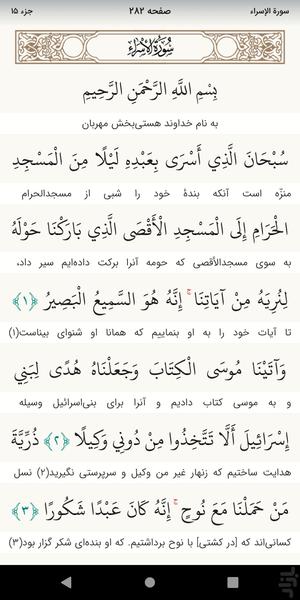 سورة الإسراء صفحه ۲۸۲ جزء ۱۵
سُورَةُ الإِسْرَاءِ
بِسْمِ اللَّهِ الرَّحْمَنِ الرَّحِيمِ
به نام خداوند هستی‌بخش مهربان
سُبْحَانَ الَّذِي أَسْرَى بِعَبْدِهِ لَيْلًا مِنَ الْمَسْجِدِ
منزّه است آنکه بندهٔ خود را شبی از مسجدالحرام
الْحَرَامِ إِلَى الْمَسْجِدِ الْأَقْصَى الَّذِي بَارَكْنَا حَوْلَهُ
به سوی مسجدالأقصی که حومه آنرا برکت داده‌ایم سیر داد،
لِنُرِيَهُ مِنْ آيَاتِنَا ۚ إِنَّهُ هُوَ السَّمِيعُ الْبَصِيرُ ﴿۱﴾
تا آیات خود را به او بنماییم که همانا او شنوای بیناست(۱)
وَآتَيْنَا مُوسَى الْكِتَابَ وَجَعَلْنَاهُ هُدًى لِبَنِي
و به موسی کتاب دادیم و آنرا برای بنی‌اسرائیل وسیله
إِسْرَائِيلَ أَلَّا تَتَّخِذُوا مِنْ دُونِي وَكِيلًا ﴿۲﴾ ذُرِّيَّةَ
هدایت ساختیم که زنهار غیر من وکیل و سرپرستی نگیرید(۲) نسل
مَنْ حَمَلْنَا مَعَ نُوحٍ ۚ إِنَّهُ كَانَ عَبْدًا شَكُورًا ﴿۳﴾
کسانی‌اند که [در کشتی] با نوح برداشتیم. که او بنده‌ای شکر گزار بود(۳)
بازار